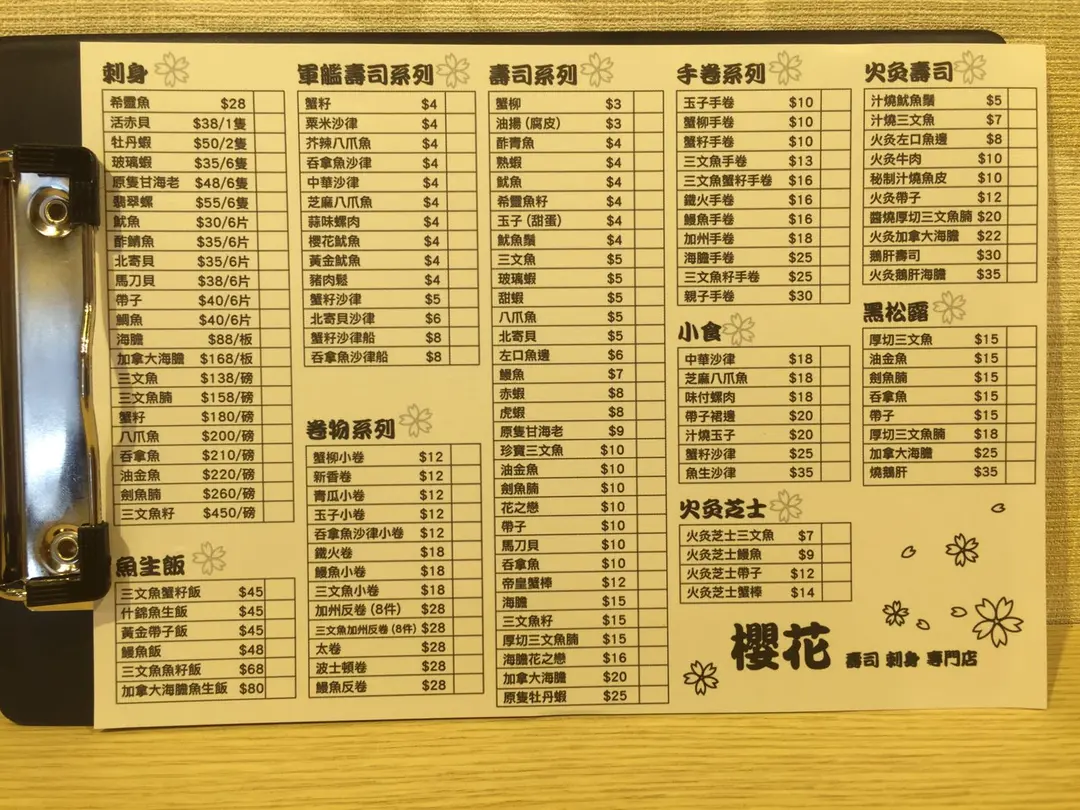 刺身
希靈魚 $28
活赤貝 $38/1隻
牡丹蝦 $50/2隻
玻璃蝦 $35/6隻
原隻甘海老 $48/6隻
翡翠螺 $55/6隻
魷魚 $30/6片
酢鯖魚 $35/6片
北寄貝 $35/6片
馬刀貝 $38/6片
帶子 $40/6片
鯛魚 $40/6片
海膽 $88/板
加拿大海膽 $168/板
三文魚 $138/磅
三文魚腩 $158/磅
蟹籽 $180/磅
八爪魚 $200/磅
吞拿魚 $210/磅
油金魚 $220/磅
劍魚腩 $260/磅
三文魚籽 $450/磅
魚生飯
三文魚蟹籽飯 $45
什錦魚生飯 $45
黃金帶子飯 $45
鰻魚飯 $48
三文魚魚籽飯 $68
加拿大海膽魚生飯 $80
軍艦壽司系列
蟹籽 $4
粟米沙律 $4
芥辣八爪魚 $4
吞拿魚沙律 $4
中華沙律 $4
芝麻八爪魚 $4
蒜味螺肉 $4
櫻花魷魚 $4
黃金魷魚 $4
豬肉鬆 $4
蟹籽沙律 $5
北寄貝沙律 $6
蟹籽沙律船 $8
吞拿魚沙律船 $8
卷物系列
蟹柳小卷 $12
新香卷 $12
青瓜小卷 $12
玉子小卷 $12
吞拿魚沙律小卷 $12
鐵火卷 $18
鰻魚小卷 $18
三文魚小卷 $18
加州反卷 (8件) $28
三文魚加州反卷 (8件) $28
太卷 $28
波士頓卷 $28
鰻魚反卷 $28
壽司系列
蟹柳 $3
油揚 (腐皮) $3
酢青魚 $4
熟蝦 $4
魷魚 $4
希靈魚籽 $4
玉子 (甜蛋) $4
魷魚鬚 $4
三文魚 $5
玻璃蝦 $5
甜蝦 $5
八爪魚 $5
北寄貝 $5
左口魚邊 $6
鰻魚 $7
赤蝦 $8
虎蝦 $8
原隻甘海老 $9
珍寶三文魚 $10
油金魚 $10
劍魚腩 $10
花之戀 $10
帶子 $10
馬刀貝 $10
吞拿魚 $10
帝皇蟹棒 $12
海膽 $15
三文魚籽 $15
厚切三文魚腩 $15
海膽花之戀 $16
加拿大海膽 $20
原隻牡丹蝦 $25
手卷系列
玉子手卷 $10
蟹柳手卷 $10
蟹籽手卷 $10
三文魚手卷 $13
三文魚蟹籽手卷 $16
鐵火手卷 $16
鰻魚手卷 $16
加州手卷 $18
海膽手卷 $25
三文魚籽手卷 $25
親子手卷 $30
小食
中華沙律 $18
芝麻八爪魚 $18
味付螺肉 $18
帶子裙邊 $20
汁燒玉子 $20
蟹籽沙律 $25
魚生沙律 $35
火灸芝士
火灸芝士三文魚 $7
火灸芝士鰻魚 $9
火灸芝士帶子 $12
火灸芝士蟹棒 $14
火灸壽司
汁燒魷魚鬚 $5
汁燒三文魚 $7
火灸左口魚邊 $8
火灸牛肉 $10
秘制汁燒魚皮 $10
火灸帶子 $12
醬燒厚切三文魚腩 $20
火灸加拿大海膽 $22
鵝肝壽司 $30
火灸鵝肝海膽 $35
黑松露
厚切三文魚 $15
油金魚 $15
劍魚腩 $15
吞拿魚 $15
帶子 $15
厚切三文魚腩 $18
加拿大海膽 $25
燒鵝肝 $35
櫻花 壽司 刺身 專門店